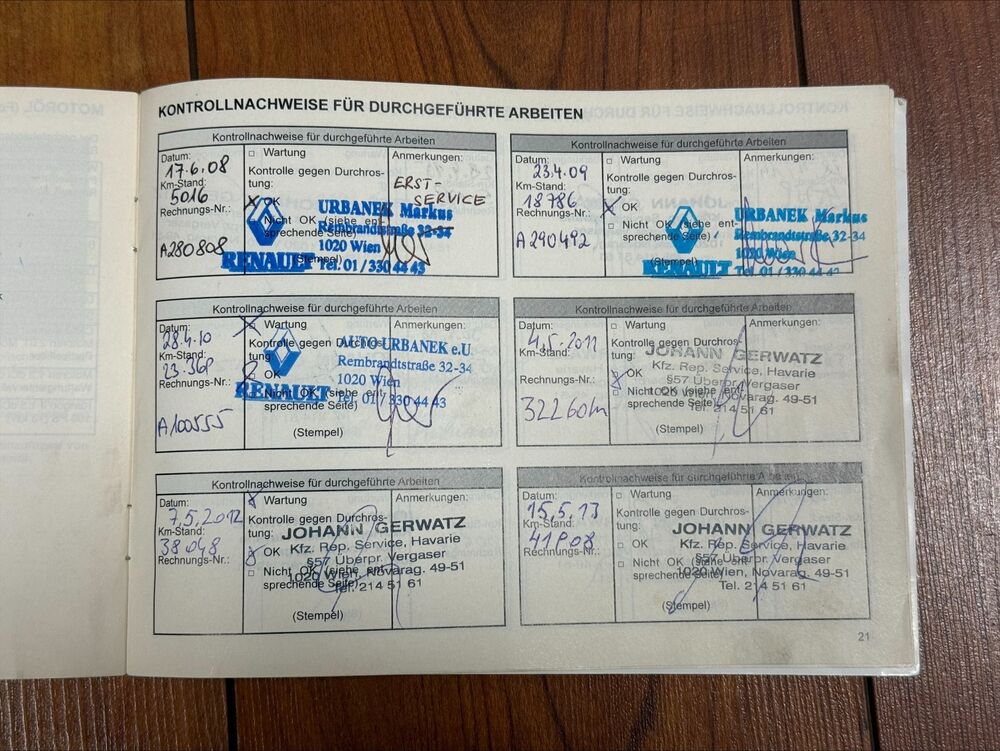 MOTORÖL
KONTROLLNACHWEISE FÜR DURCHGEFÜHRTE ARBEITEN
Kontrollnachweise für durchgeführte Arbeiten
Datum:
17.6.08
Km-Stand:
5016
Rechnungs-Nr.:
A280808
Wartung
Kontrolle gegen Durchros-
tung:
OK
Nicht OK (siehe ent-
sprechende Seite)
(Stempel)
Anmerkungen:
ERST-
SERVICE
URBANEK Markus
Rembrandtstraße 32-34
1020 Wien
RENAULT Tel. 01 / 330 44 43
Kontrollnachweise für durchgeführte Arbeiten
Datum:
23.4.09
Km-Stand:
18786
Rechnungs-Nr.:
A290492
Wartung
Kontrolle gegen Durchros-
tung:
OK
Nicht OK (siehe ent-
sprechende Seite)
(Stempel)
Anmerkungen:
URBANEK Markus
Rembrandtstraße 32-34
1020 Wien
RENAULT Tel. 01 / 330 44 43
Kontrollnachweise für durchgeführte Arbeiten
Datum:
28.4.10
Km-Stand:
23.368
Rechnungs-Nr.:
A100555
Wartung
Kontrolle gegen Durchros-
tung:
OK
Nicht OK (siehe ent-
sprechende Seite)
(Stempel)
Anmerkungen:
AUTO URBANEK e.U.
Rembrandtstraße 32-34
1020 Wien
RENAULT Tel. 01 / 330 44 43
Kontrollnachweise für durchgeführte Arbeiten
Datum:
4.5.2011
Km-Stand:
Rechnungs-Nr.:
32260km
Wartung
Kontrolle gegen Durchros-
tung:
OK
Nicht OK (siehe ent-
sprechende Seite)
(Stempel)
Anmerkungen:
JOHANN GERWATZ
Kfz. Rep. Service, Havarie
§57 Überpr. Vergaser
1020 Wien, Novarag. 49-51
Tel. 214 51 61
Kontrollnachweise für durchgeführte Arbeiten
Datum:
7.5.2012
Km-Stand:
38048
Rechnungs-Nr.:
Wartung
Kontrolle gegen Durchros-
tung:
OK
Nicht OK (siehe ent-
sprechende Seite)
(Stempel)
Anmerkungen:
JOHANN GERWATZ
Kfz. Rep. Service, Havarie
§57 Überpr. Vergaser
1020 Wien, Novarag. 49-51
Tel. 214 51 61
Kontrollnachweise für durchgeführte Arbeiten
Datum:
15.5.13
Km-Stand:
41908
Rechnungs-Nr.:
Wartung
Kontrolle gegen Durchros-
tung:
OK
Nicht OK (siehe ent-
sprechende Seite)
(Stempel)
Anmerkungen:
JOHANN GERWATZ
Kfz. Rep. Service, Havarie
§57 Überpr. Vergaser
1020 Wien, Novarag. 49-51
Tel. 214 51 61
21